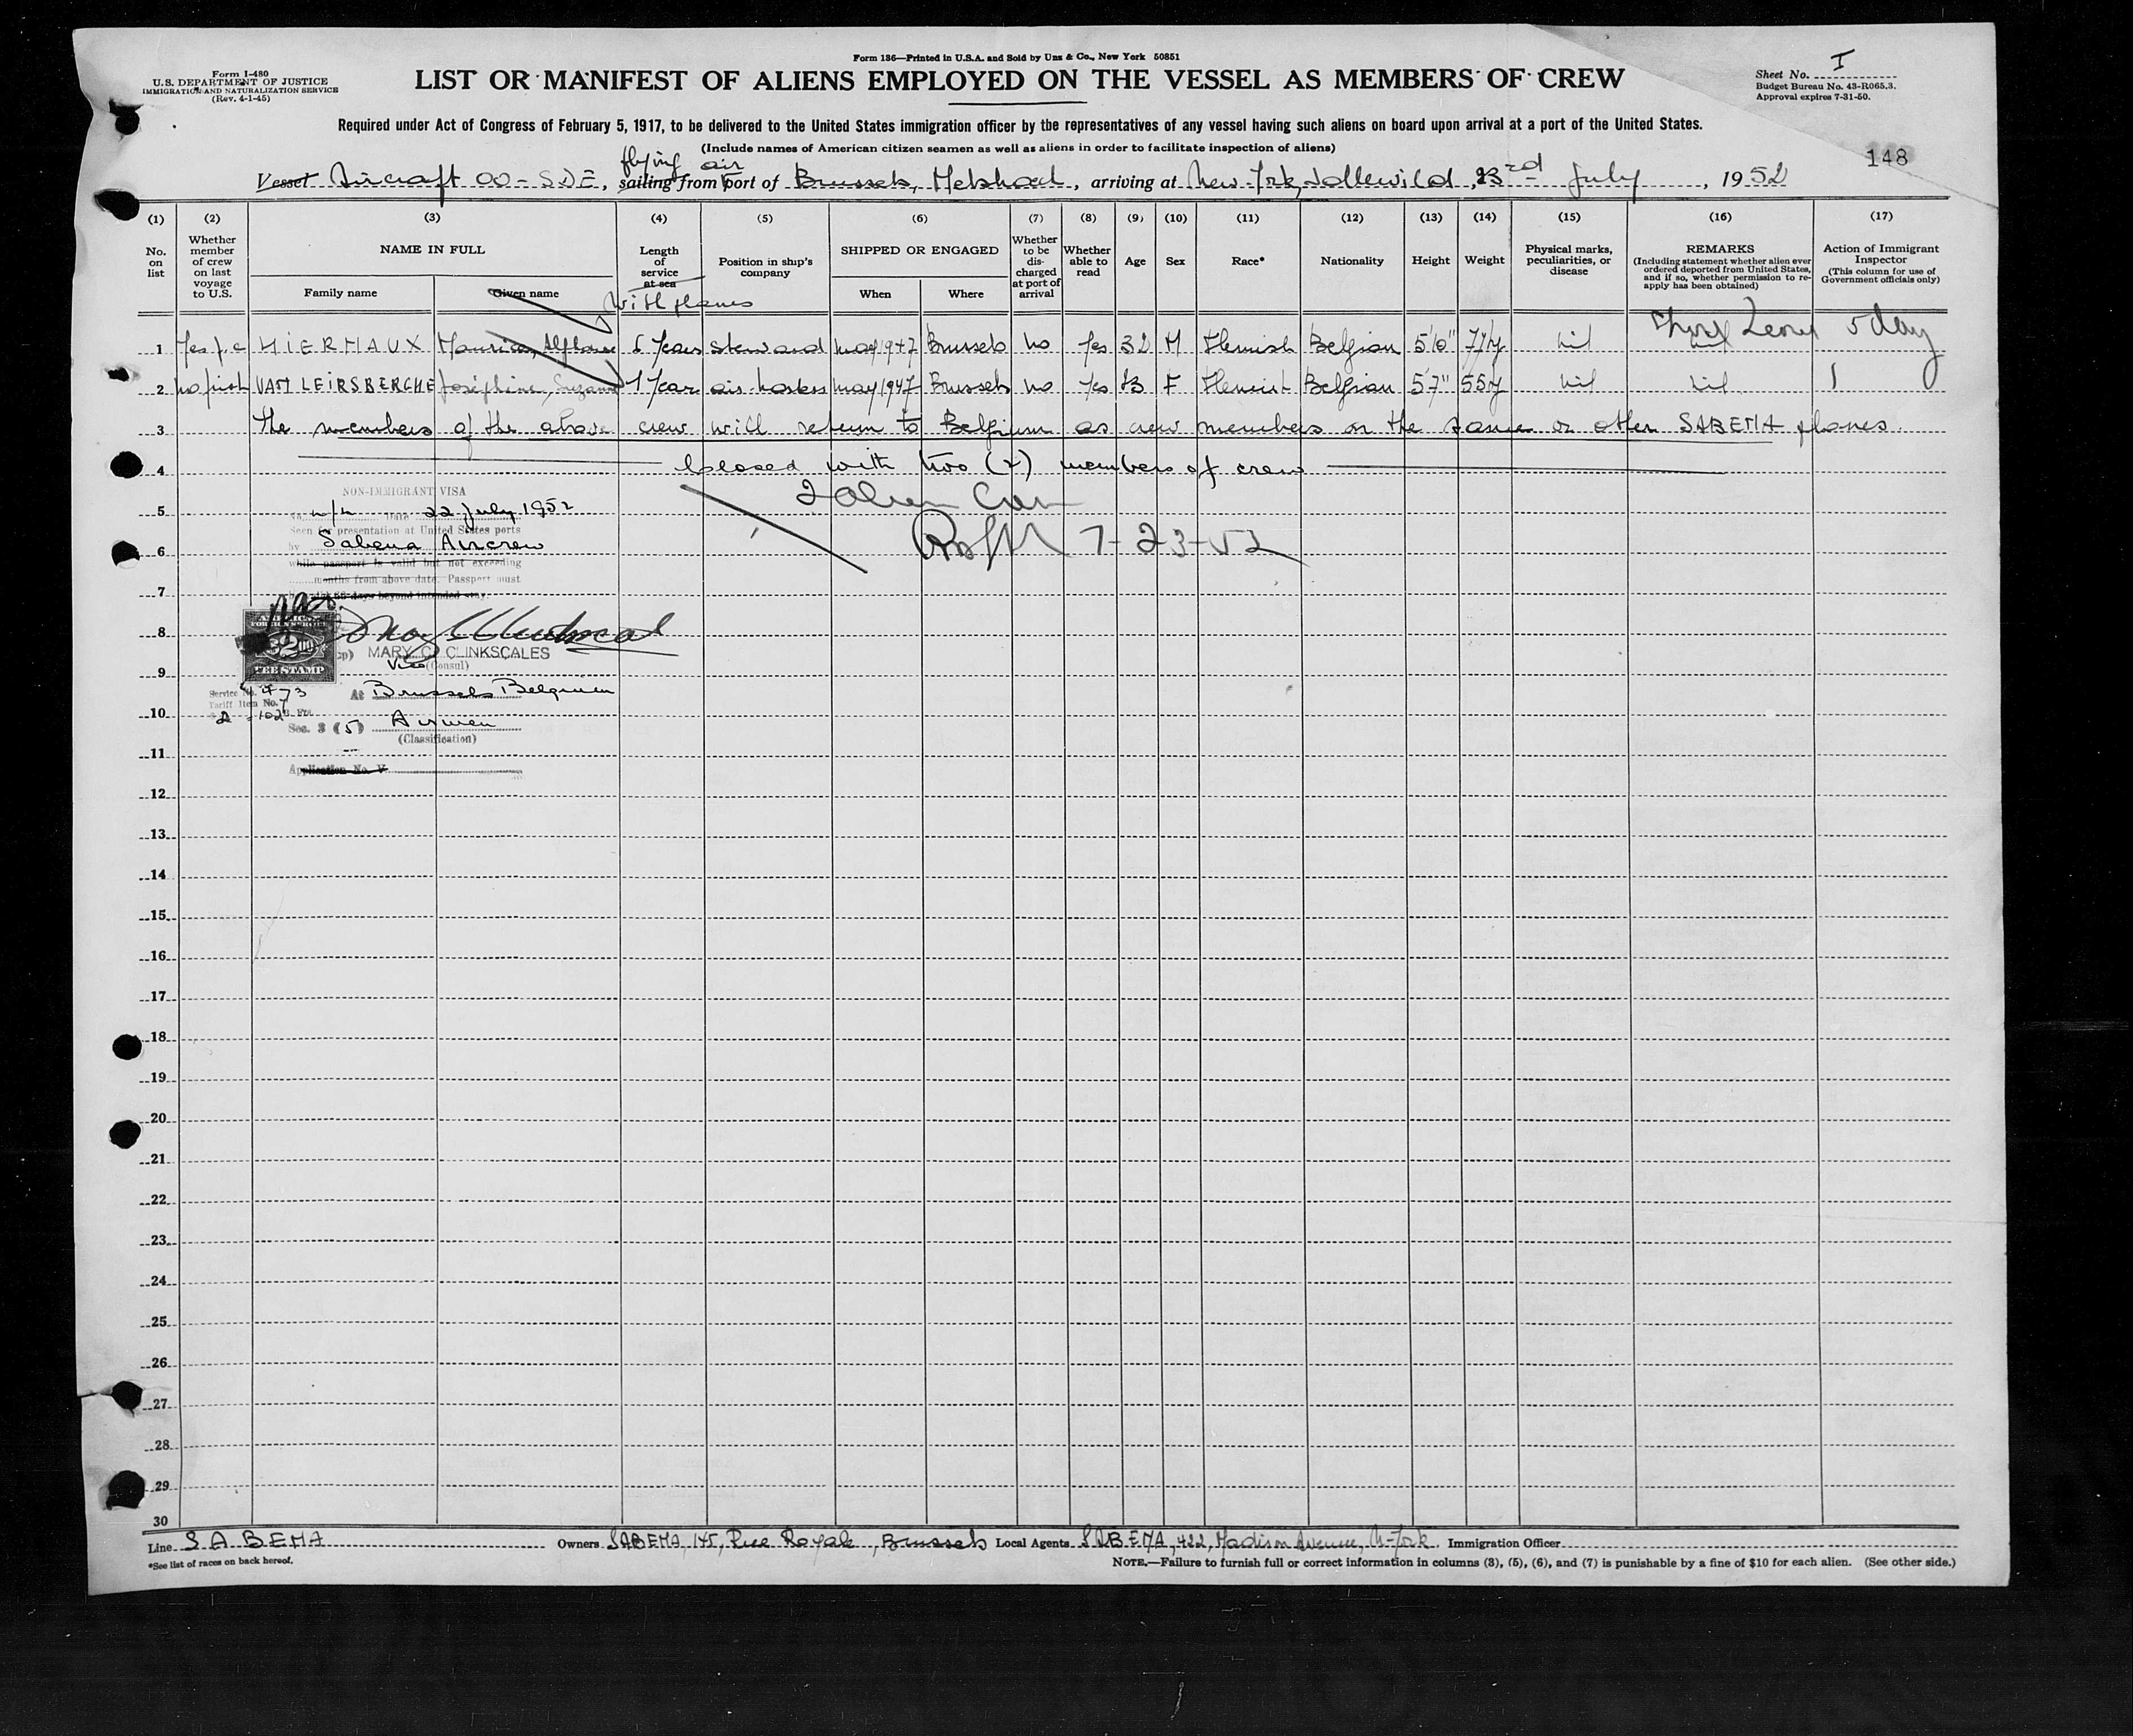 Form I-480
U.S. DEPARTMENT OF JUSTICE
IMMIGRATION AND NATURALIZATION SERVICE
(Rev. 4-1-45)
Form 136—Printed in U.S.A. and Sold by Unz & Co., New York 50851
LIST OR MANIFEST OF ALIENS EMPLOYED ON THE VESSEL AS MEMBERS OF CREW
Sheet No. I
Budget Bureau No. 43-R065.3.
Approval expires 7-31-50.
Required under Act of Congress of February 5, 1917, to be delivered to the United States immigration officer by the representatives of any vessel having such aliens on board upon arrival at a port of the United States.
(Include names of American citizen seamen as well as aliens in order to facilitate inspection of aliens)
148
flying air
Vessel Aircraft OO-SDE, sailing from port of Brussels, Melsbroek, arriving at New-York, Idlewild, 23rd July, 1952
(1) (2) (3) (4) (5) (6) (7) (8) (9) (10) (11) (12) (13) (14) (15) (16) (17)
No. on list
Whether member of crew on last voyage to U.S.
NAME IN FULL
Family name
Given name
Length of service at sea
with planes
Position in ship's company
SHIPPED OR ENGAGED
When
Where
Whether to be discharged at port of arrival
Whether able to read
Age
Sex
Race*
Nationality
Height
Weight
Physical marks, peculiarities, or disease
REMARKS
(Including statement whether alien ever ordered deported from United States, and if so, whether permission to reapply has been obtained)
Action of Immigrant Inspector
(This column for use of Government officials only)
5 day
1 Yes MIERMAUX Maurice, Alphonse 5 Years steward may 1947 Brussels no Yes 32 M Flemish Belgian 5'6" nil nil
2 no first VAN LEIRSBERGHE Joséphine, Suzanne 1 Year air-hostess may 1947 Brussels no Yes F Flemish Belgian 5'7" nil nil
3 The members of the above crew will return to Belgium as crew members on the same or other SABENA planes.
4 Closed with two (2) members of crew
NON-IMMIGRANT VISA
5 Date 22 July 1952
2 alien Crew
Seen for presentation at United States ports
6 by Sabena Aircrew
7-23-52
while passport is valid but not exceeding
months from above date. Passport must
7 days beyond intended stay.
8
FEE STAMP
MARY C. CLINKSCALES
9 Vice (Consul)
Service No. 4773
At Brussels Belgium
Tariff Item No. 7
10 2 102
Sec. 3 (5) Airmen
(Classification)
11
Application No. V
12
13
14
15
16
17
18
19
20
21
22
23
24
25
26
27
28
29
30
Line SABENA Owners SABENA, 145, Rue Royale, Brussels Local Agents SABENA, 422, Madison Avenue, N-York. Immigration Officer
*See list of races on back hereof.
NOTE.—Failure to furnish full or correct information in columns (3), (5), (6), and (7) is punishable by a fine of $10 for each alien. (See other side.)